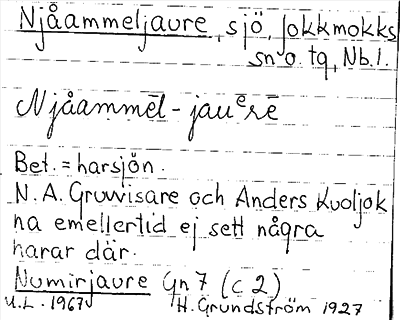 Njåammeljaure, sjö, Jokkmokks
sn o. tg, Nb. l.
Njåammēl-jauᵉrē
Bet. = harsjön.
N. A. Gruvvisare och Anders Kuoljok
ha emellertid ej sett några
harar där.
Numirjaure Gn 7 (c 2)
U.L. 1967 H. Grundström 1927